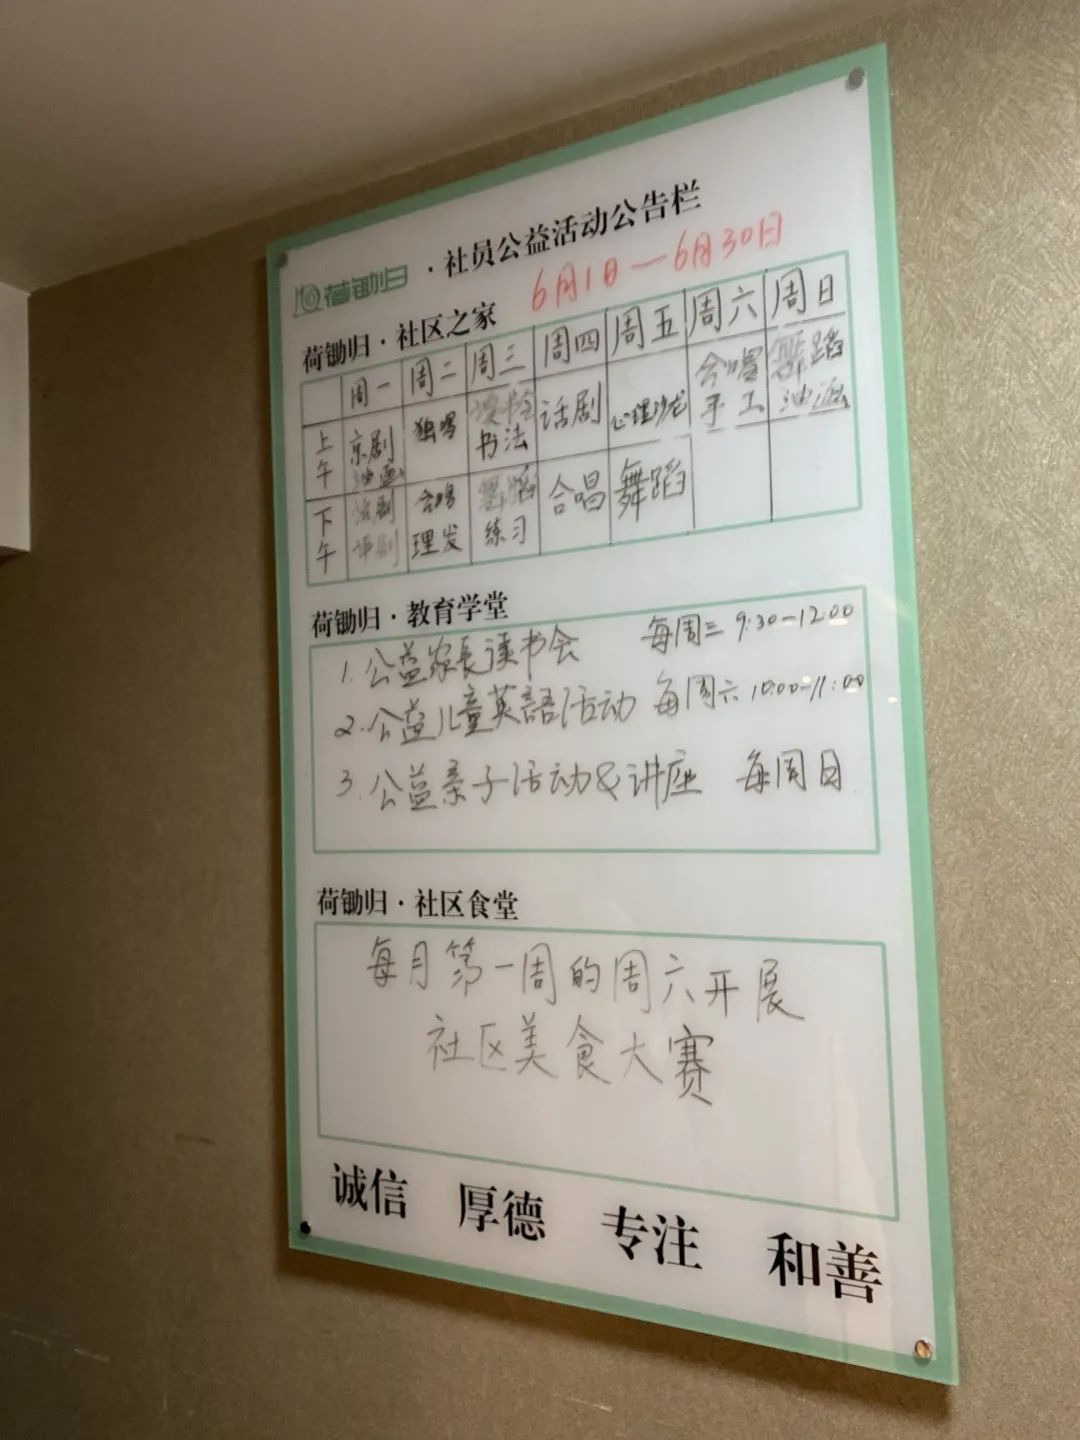 荷锄归·社员公益活动公告栏
6月1日—6月30日
荷锄归·社区之家
周一 周二 周三 周四 周五 周六 周日
上午 京剧 油画 独唱 读书会 书法 话剧 心理沙龙 合唱 手工 舞蹈 油画
下午 话剧 评剧 合唱 理发 舞蹈 练习 合唱 舞蹈
荷锄归·教育学堂
1. 公益家长读书会 每周三 9:30—12:00
2. 公益儿童英語活动 每周六 10:00—11:00
3. 公益亲子活动&讲座 每周日
荷锄归·社区食堂
每月第一周的周六开展
社区美食大赛
诚信 厚德 专注 和善